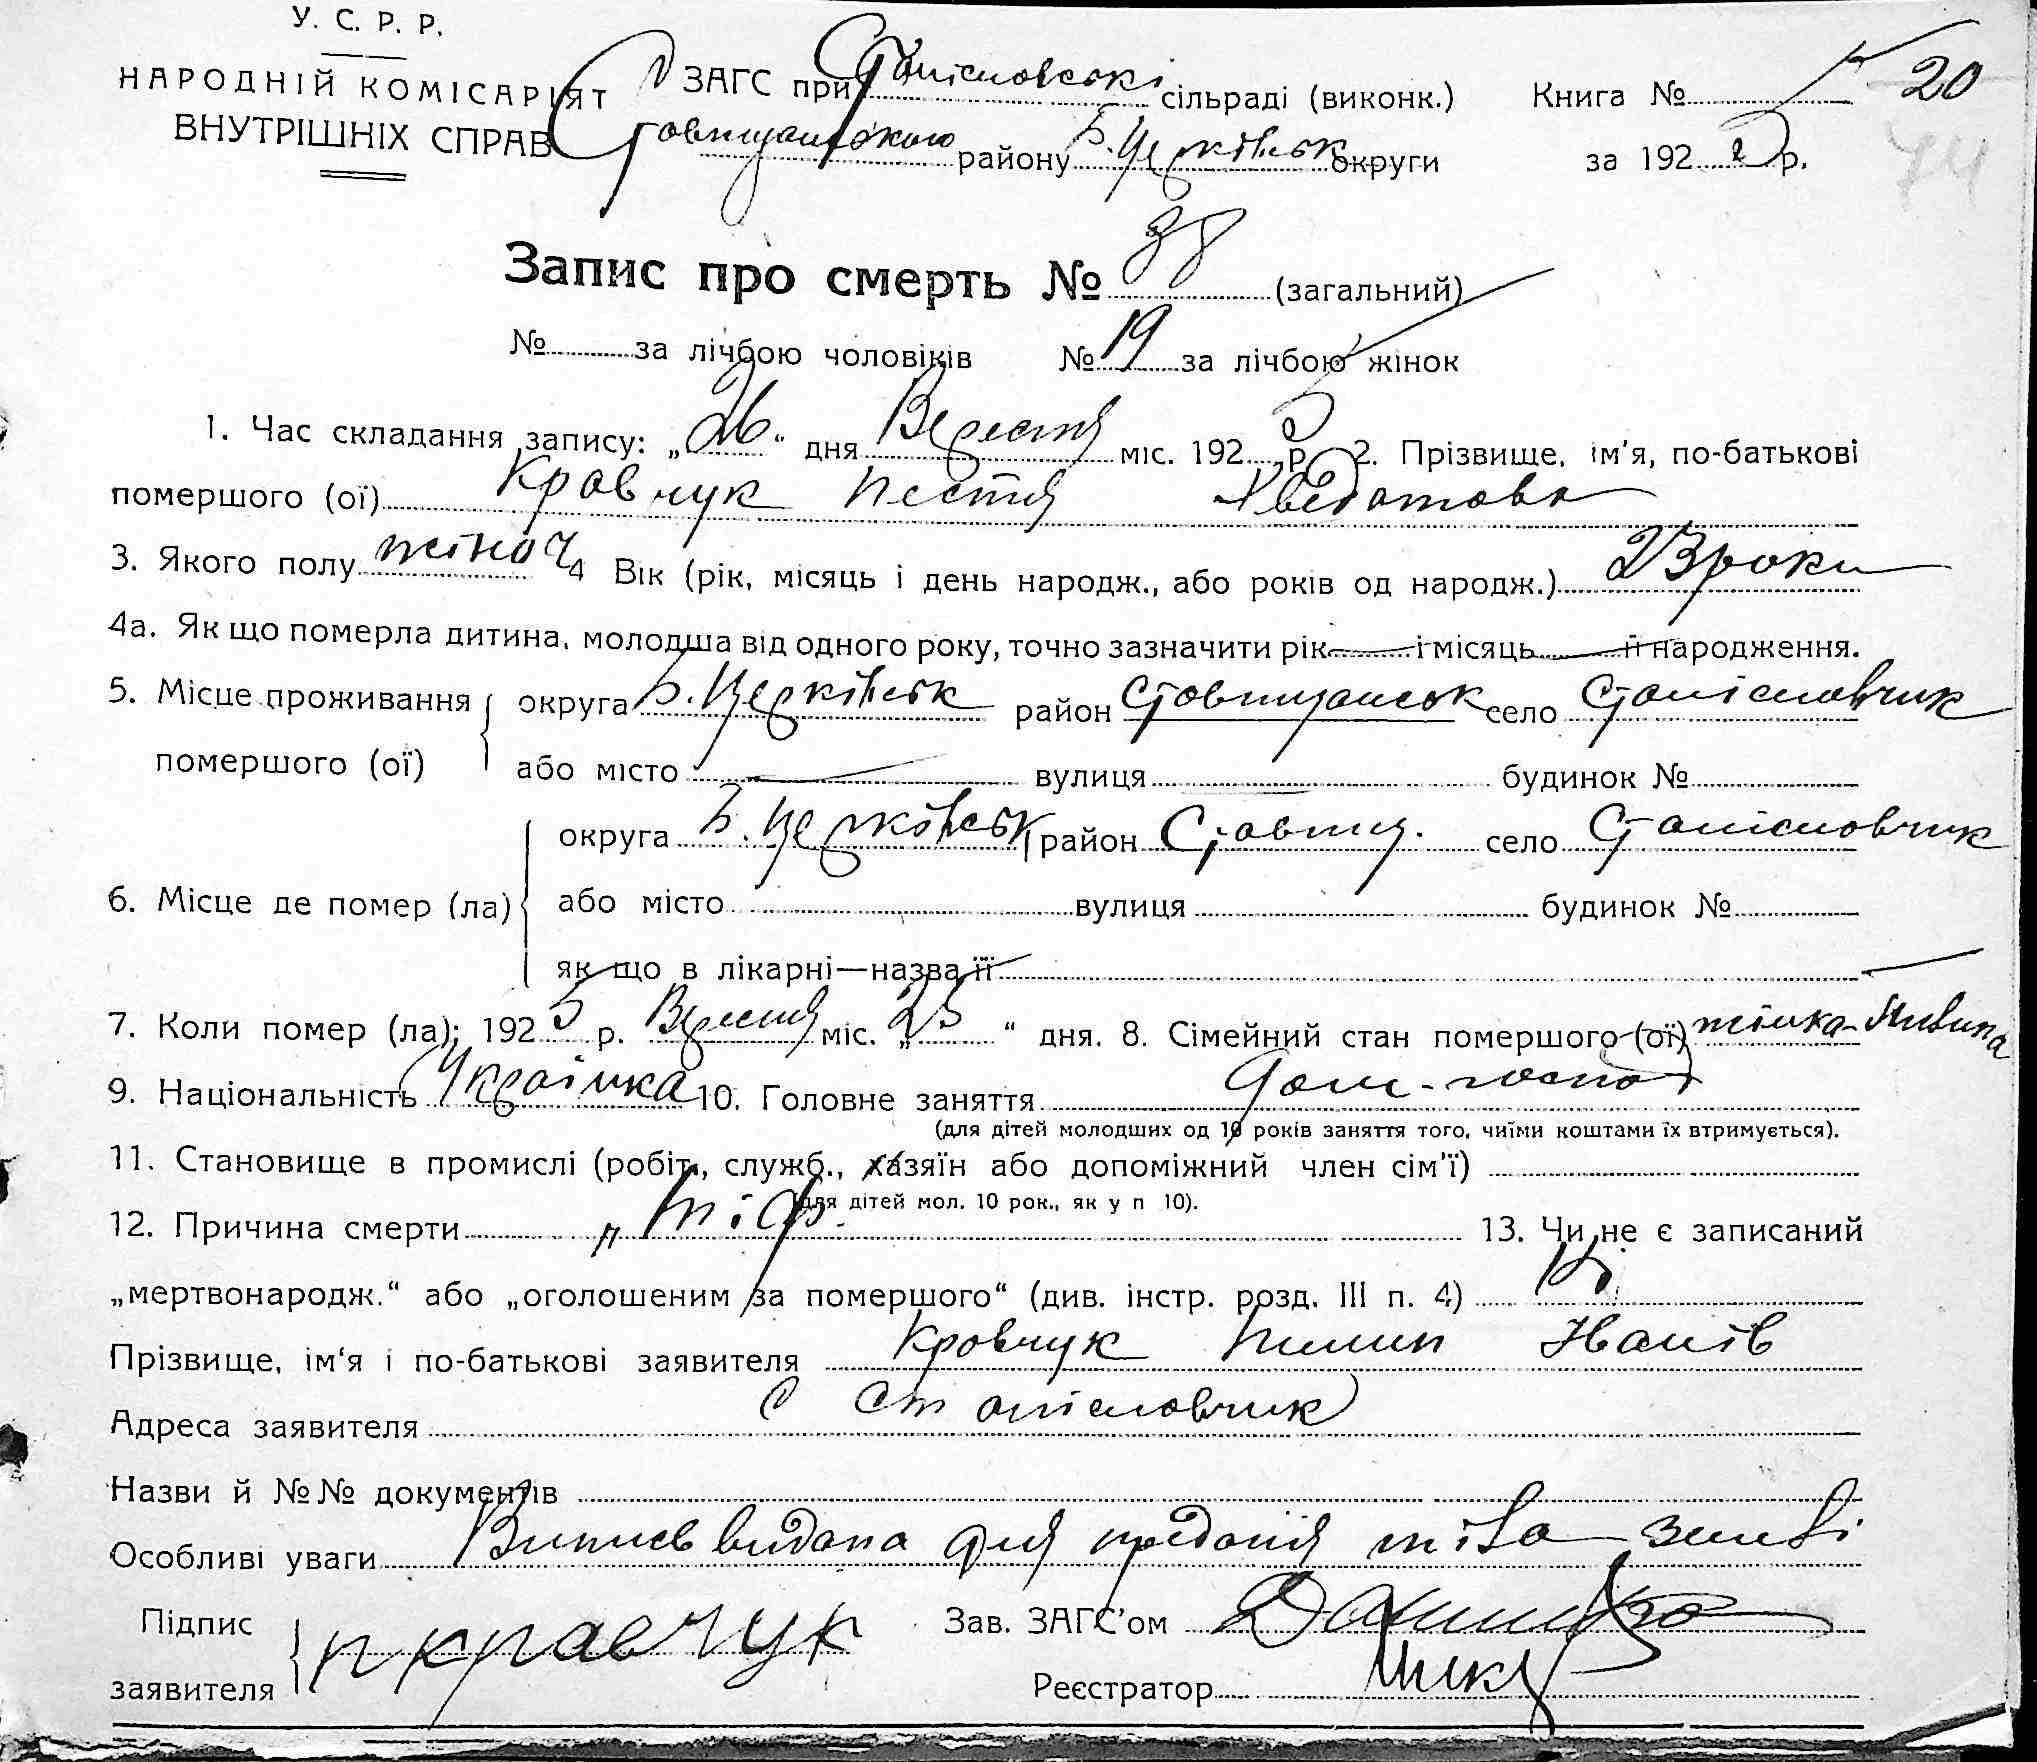 У. С. Р. Р.
НАРОДНІЙ КОМІСАРІЯТ
ВНУТРІШНІХ СПРАВ
ЗАГС при Станіславські сільраді (виконк.) Книга № 20
Ставищанською району Б. Церківськ округи за 192 5 р.
74
Запис про смерть № 38 (загальний)
№ за лічбою чоловіків № 19 за лічбою жінок
1. Час складання запису: „26“ дня Вересня міс. 192 5 р. 2. Прізвище, ім'я, по-батькові
помершого (ої) Кравчук Настя Хведотова
3. Якого полу жіноч 4 Вік (рік, місяць і день народж., або років од народж.) 23 роки
4а. Як що померла дитина, молодша від одного року, точно зазначити рік і місяць її народження.
5. Місце проживання округа Б. Церківськ район Ставищанськ село Станіславчик
помершого (ої) або місто вулиця будинок №
округа Б. Церківськ район Ставищ. село Станіславчик
6. Місце де помер (ла) або місто вулиця будинок №
як що в лікарні—назва її
7. Коли помер (ла); 192 5 р. Вересня міс. „23“ дня. 8. Сімейний стан помершого (ої) жінка
9. Національність Українка 10. Головне заняття Дом-господ
(для дітей молодших од 10 років заняття того, чиїми коштами їх втримується).
11. Становище в промислі (робіт., служб., хазяїн або допоміжний член сім'ї)
(для дітей мол. 10 рок., як у п 10).
12. Причина смерти „тіф. 13. Чи не є записаний
„мертвонародж.“ або „оголошеним за помершого“ (див. інстр. розд. III п. 4) Ні
Прізвище, ім'я і по-батькові заявителя Кравчук Пилип Іванів
Адреса заявителя с Станіславчик
Назви й №№ документів
Особливі уваги Випись видана для предания тіла землі
Підпис заявителя П Кравчук Зав. ЗАГС'ом
Реєстратор